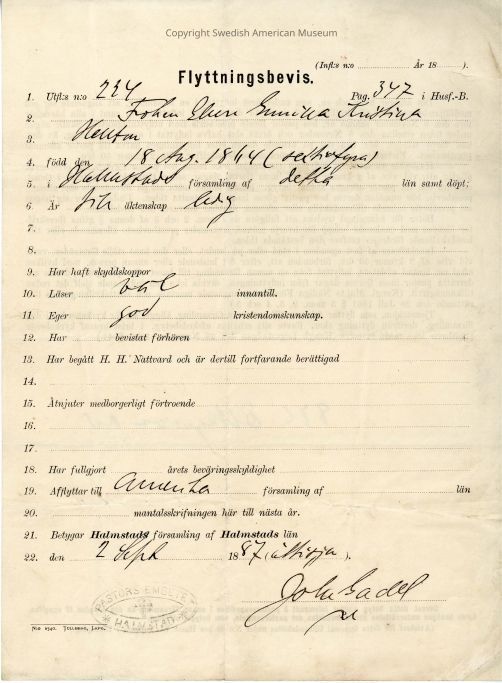 Copyright Swedish American Museum
(Infl:s n:o ........ År 18 ........ ).
Flyttningsbevis.
1. Utfl:s n:o 234 Pag. 347 i Husf.-B.
2. Kristina
3.
4. född den 18 Aug. 1864 (sextiofyra)
5. i Halmstads församling af detta län samt döpt;
6. Är till äktenskap ledig
7.
8.
9. Har haft skyddskoppor
10. Läser väl innantill.
11. Eger god kristendomskunskap.
12. Har bevistat förhören
13. Har begått H. H. Nattvard och är dertill fortfarande berättigad
14.
15. Åtnjuter medborgerligt förtroende
16.
17.
18. Har fullgjort årets beväringsskyldighet
19. Afflyttar till Amerika församling af län
20. mantalsskrifningen här till nästa år.
21. Betygar Halmstads församling af Halmstads län
22. den 2 Sept. 1887 (åttisju).
PASTORS EMBETE
HALMSTAD